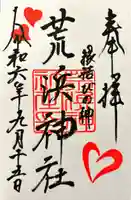 奉拝
縁結びの神
荒浜神社
令和六年九月十五日